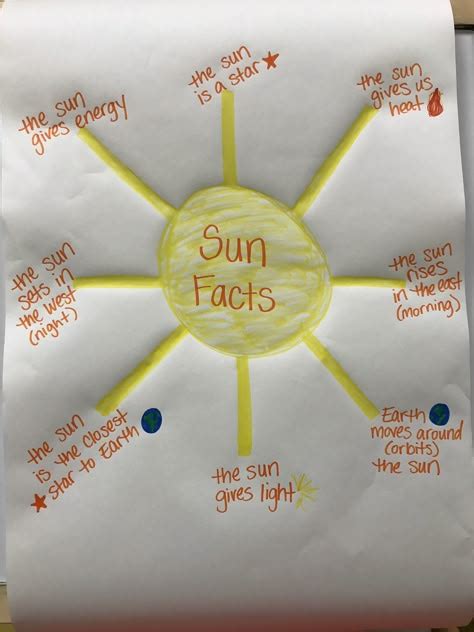 the sun
is a star
the sun
gives us
heat
the sun
gives energy
Sun
Facts
the sun
sets in
the west
(night)
the sun
rises
in the east
(morning)
the sun
is the closest
star to Earth
the sun
gives light
Earth
moves around
(orbits)
the sun